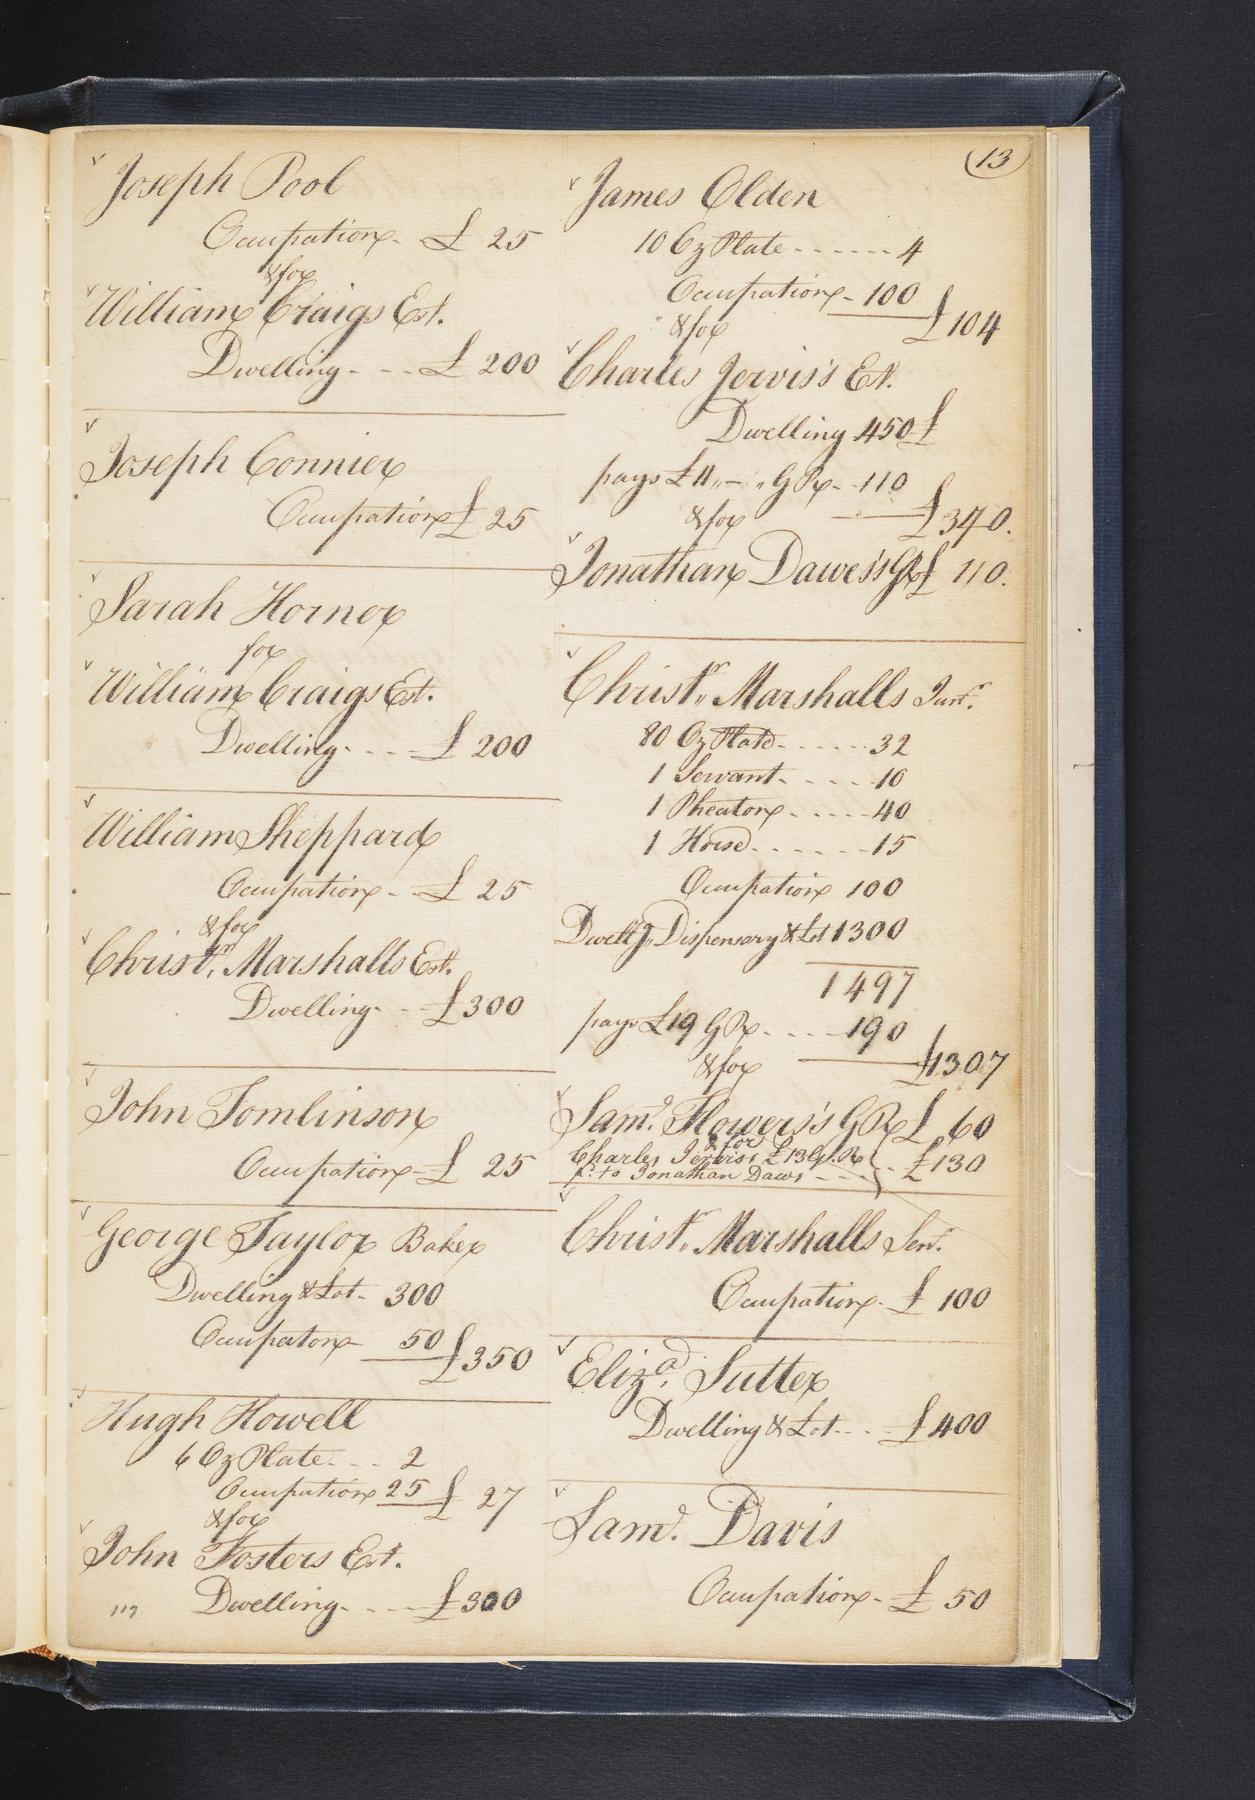 13
Joseph Pool
Occupation - £ 25
& for
William Craigs Est.
Dwelling - - - £ 200
Joseph Connier
Occupation £ 25
Sarah Horner
for
William Craigs Est.
Dwelling - - - - £ 200
William Sheppard
Occupation - £ 25
& for
Christr. Marshalls Est.
Dwelling - - £ 300
John Tomlinson
Occupation - £ 25
George Taylor Baker
Dwelling & Lot - 300
Occupation 50 £350
Hugh Howell
6 Oz Plate - - - 2
Occupation 25 £ 27
& for
John Fosters Est.
Dwelling - - - - £300
James Olden
10 Oz Plate - - - - - - 4
Occupation - 100
& for £104
Charles Jervis's Est.
Dwelling 450 £
pays £11 " — " G R - - 110
& for £340.
Jonathan Dawes's GR £ 110.
Christr. Marshalls Junr.
80 Oz Plate - - - - - - 32
1 Servant - - - - - 10
1 Pheaton - - - - - 40
1 Horse - - - - - - 15
Occupation 100
Dwellg. Dispensary & Lot 1300
1497
pays £19 G R - - - - 190
& for £1307
Saml. Flowers's G R £ 60
& for
Charles Jervis's £13 G. R
pd. to Jonathan Daws - - - } - - £130
Christr. Marshalls Senr.
Occupation - £ 100
Eliza. Sutter
Dwelling & Lot - - - £400
Saml. Davis
Occupation - £ 50